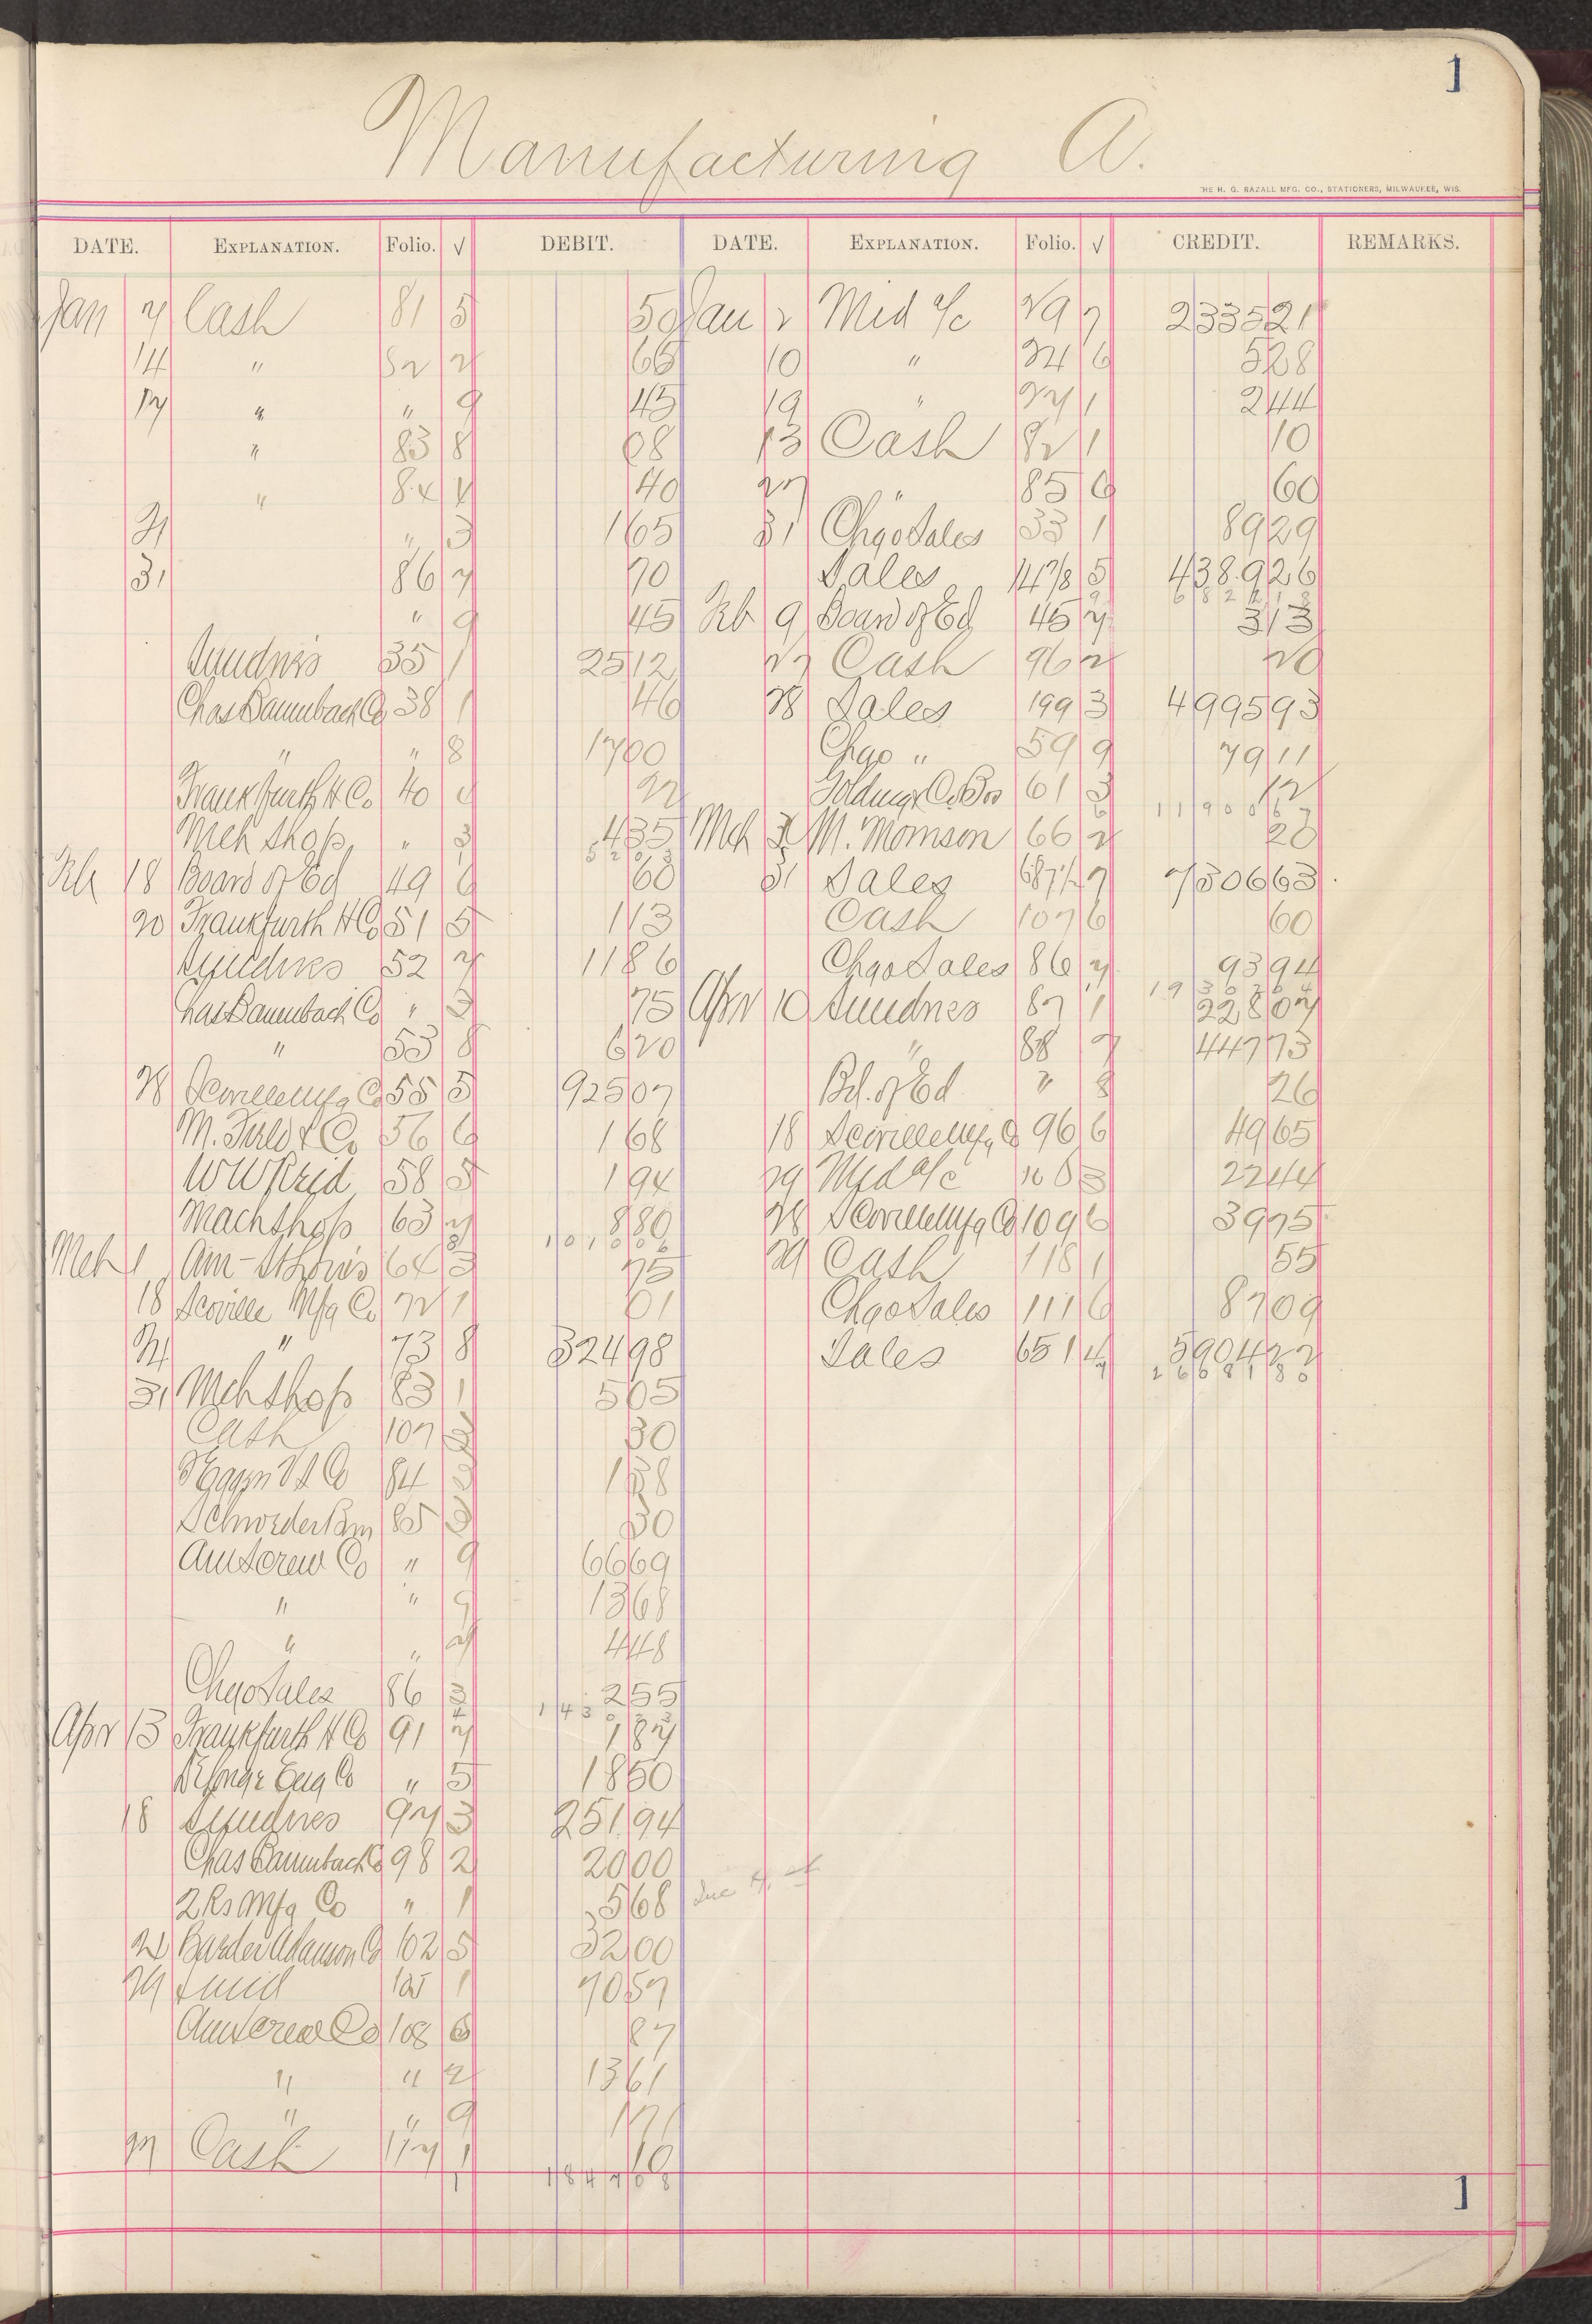 1
Manufacturing A.
THE H. G. RAZALL MFG. CO., STATIONERS, MILWAUKEE, WIS.
DATE. EXPLANATION. Folio. √ DEBIT. DATE. EXPLANATION. Folio. √ CREDIT. REMARKS.
Jan 7 Cash 81 5 50 Jan 2 Md a/c 29 7 2335 21
14 " 82 2 65 10 " 24 6 5 28
17 " " 9 45 19 " 27 1 2 44
" 83 8 08 13 Cash 82 1 10
" 84 40 27 " 85 6 60
21 " 3 1 65 31 Chgo Sales 33 1 89 29
31 86 7 70 Sales 147/8 5 4389 26
6 8 2 2 1 8
" 9 45 Feb 9 Board of Ed 45 7 3 13
Sundries 35 1 25 12 27 Cash 96 2 20
Chas Baumbach Co 38 1 46 28 Sales 199 3 4995 93
" " 8 17 00 Chgo " 59 9 79 11
Frankfurth H Co 40 22 61 3 12
1 1 9 0 0 6 7
Mch Shop " 3 4 35 Mch M. Morrison 66 2 20
5 2 0 3
Feb 18 Board of Ed 49 6 60 31 Sales 687 1/2 7 7306 63
20 Frankfurth H Co 51 5 1 13 Cash 107 6 60
Sundries 52 7 11 86 Chgo Sales 86 7 93 94
1 9 3 0 2 0 4
Chas Baumbach Co " 3 75 Apr 10 Sundries 87 1 228 07
" 53 8 6 20 " 88 7 447 73
28 Scoville Mfg Co 55 5 925 07 Bd. of Ed " 8 26
M. Field & Co 56 6 1 68 18 Scoville Mfg Co 96 6 49 65
W W Reid 58 5 1 94 29 Md a/c 3 22 44
Mach Shop 63 7 8 80 28 Scoville Mfg Co 109 6 39 75
1 0 1 0 0 6
Mch 1 Am-St Louis 64 3 75 29 Cash 118 1 55
18 Scoville Mfg Co 72 1 01 Chgo Sales 111 6 87 09
21 " 73 8 324 98 Sales 651 4 5904 22
2 6 0 8 1 8 0
31 Mch Shop 83 1 5 05
Cash 107 6 30
Co 84 1 38
Schroeder 85 6 30
Am Screw Co " 9 66 69
" " 9 13 68
" " 7 4 48
Chgo Sales 86 3 2 55
1 4 3 0 2 3
Apr 13 Frankfurth H Co 91 7 1 87
Eng Co " 5 18 50
18 Sundries 97 3 251 94
Chas Baumbach Co 98 2 20 00
2 Rs Mfg Co " 1 5 68
21 Adamson Co 102 5 32 00
29 Sund 105 1 70 57
Am Screw Co 108 6 87
" " 2 13 61
" " 9 1 71
27 Cash 117 1 10
1 1 8 4 7 0 8
1